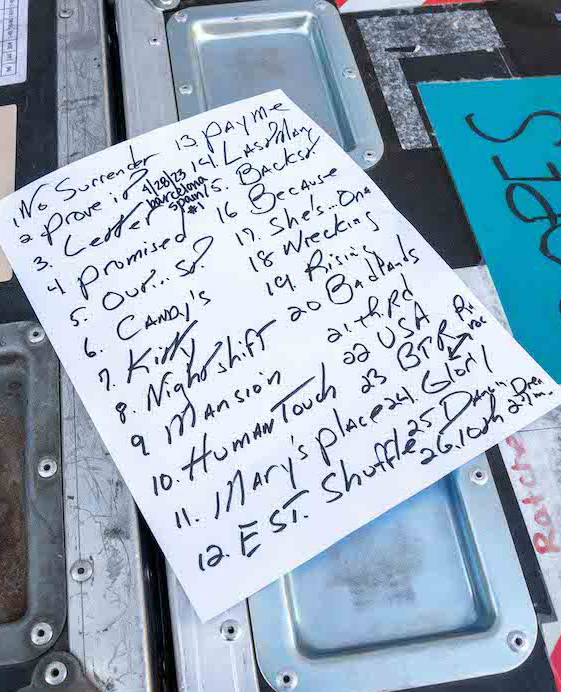 1. No Surrender
2 Prove it?
3. Letter
4 Promised
5. Our...S?
6. Candy's
7. Kitty
8. Nightshift
9 Mansion
10. Human Touch
11. Mary's place
12. E ST. Shuffle
4/28/23
barcelona
Spain
#1
13. Pay Me
14. Last Man
15. Backst
16 Because
17. She's...One
18 Wrecking
19. Rising
20 Badlands
21. Th. Rd
22 USA
23 BTR
24. Glory
25 Dancin
26. 10th
Ratche